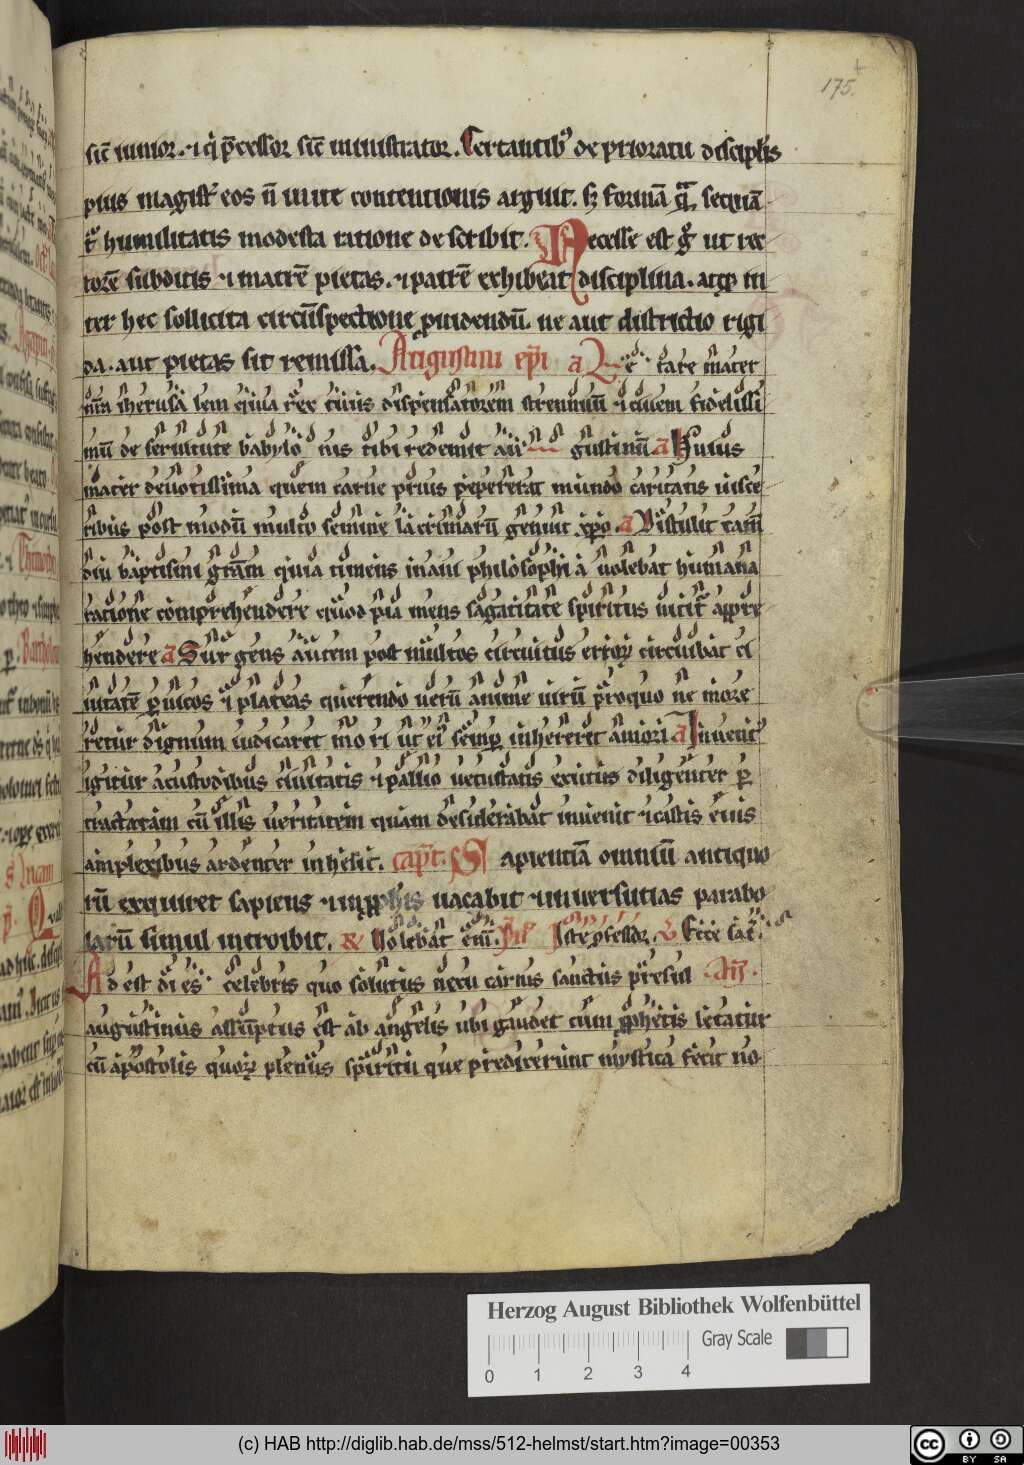 175.
sic̄ iunior. ⁊ q̄ p̄cessor sic̄ ministrator. Certantib᷒ de prioratu disciplis
pius magist̄ eos n̄ in iure contentionis arguit. sꝫ formā q̄ sequā
t᷒ humilitatis modesta ratione describit. Necesse est g̊ ut rec
torē subditis ⁊ matrē pietas. ⁊ patrē exhibeat disciplina. atqꝫ in
ter hec sollicita circūspectione ꝓuidendū. ne aut districtio rigi
da. aut pietas sit remissa. Augustini ep̄i a Le tare mater
nr̄a iherusalem quia rex tuus dispensatorem strennuū ⁊ ciuem fidelissi
mū de seruitute babylonis tibi redemit au gustinū a Huius
mater deuotissima quem carne prius pepererat mundo caritatis uisce
ribus post modū multo semine lacrimarū genuit xp̄o. a Distulit tam̄
diu baptismi gr̄am quia tumens inani philosophia uolebat humana
ratione comprehendere quod pia mens sagacitate spiritus uicit᷒ appre
hendere a Surgens autem post multos circuitus erroꝝ circuibat ci
uitatē ꝑ uicos ⁊ plateas querendo uerū anime uirū pro quo ne more
retur dignum iudicaret mori ut ei semꝑ inhereret amori a Inuent᷒
igitur a custodibus ciuitatis ⁊ pallio uetustatis exutus diligenter ꝑ
tractatam cū illis ueritatem quam desiderabat inuenit ⁊ castis eius
amplexibus ardenter inhesit. capt̄. Sapientiā omniū antiquo
rū exquiret sapiens ⁊ in ꝓphis uacabit ⁊ in uersutias parabo
larū simul introibit. Volebat eni. Iste ꝯfessor. Ecce sac̄.
Ad est di es celebris quo solutus nexu carnis sanctus presul An̄.
augustinus assūptus est ab angelis ubi gaudet cum ꝓphetis letatur
cū apostolis quoꝝ plenus spiritu que predixerunt mystica fecit no
Herzog August Bibliothek Wolfenbüttel
Gray Scale
0 1 2 3 4
(c) HAB http://diglib.hab.de/mss/512-helmst/start.htm?image=00353
cc BY SA